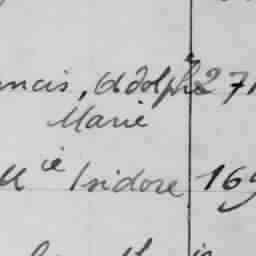 ncis, Adolphe 271
Marie
M^ie Isidore 169